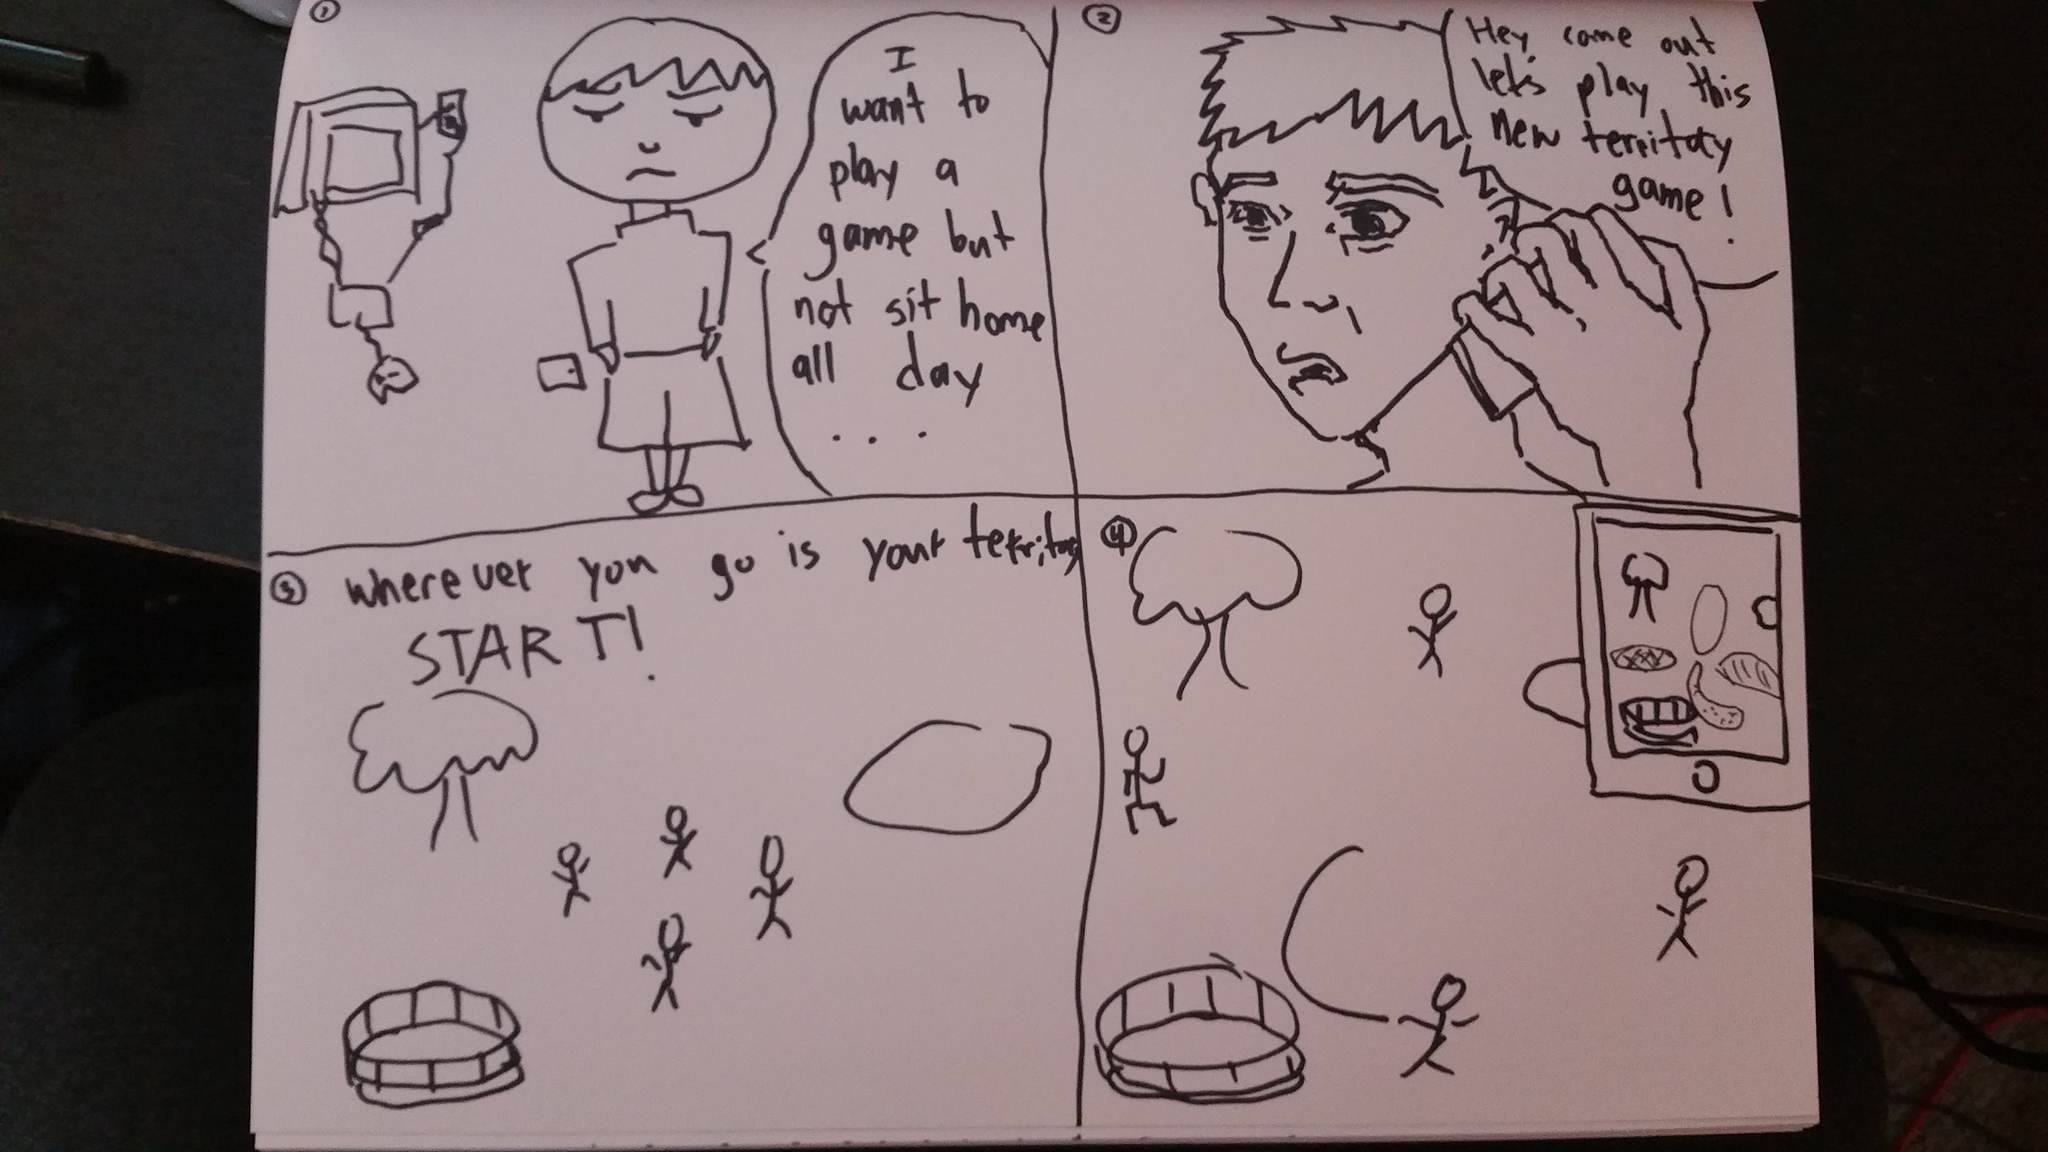 1
I
want to
play a
game but
not sit home
all day
. . .
2
Hey, come out
let's play this
new territory
game!
3 wherever you go is your territory
START!
4